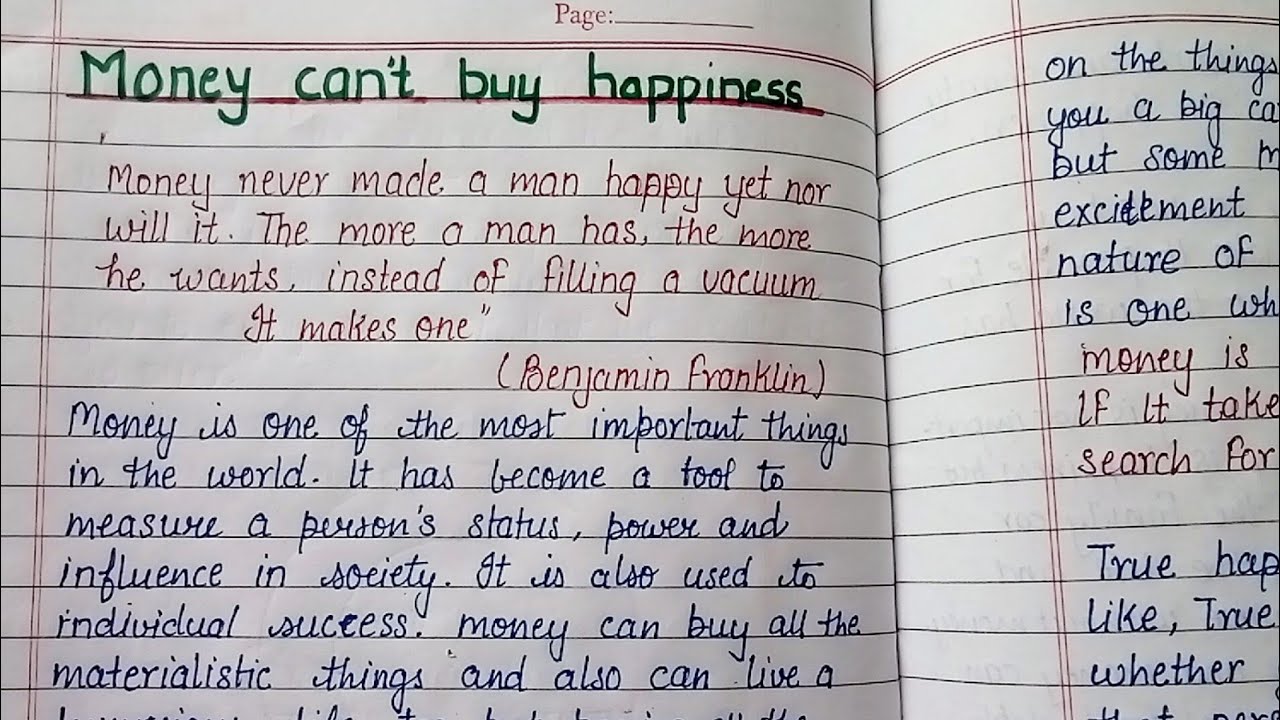 Page:
Money can't buy happiness
Money never made a man happy yet nor
will it. The more a man has, the more
he wants, instead of filling a vacuum
It makes one"
(Benjamin Franklin)
Money is one of the most important things
in the world. It has become a tool to
measure a person's status, power and
influence in society. It is also used to
individual success. money can buy all the
materialistic things and also can live a
on the things
you a big
but some
excitement
nature of
is one
money is
If It take
search for
True
like, True
whether